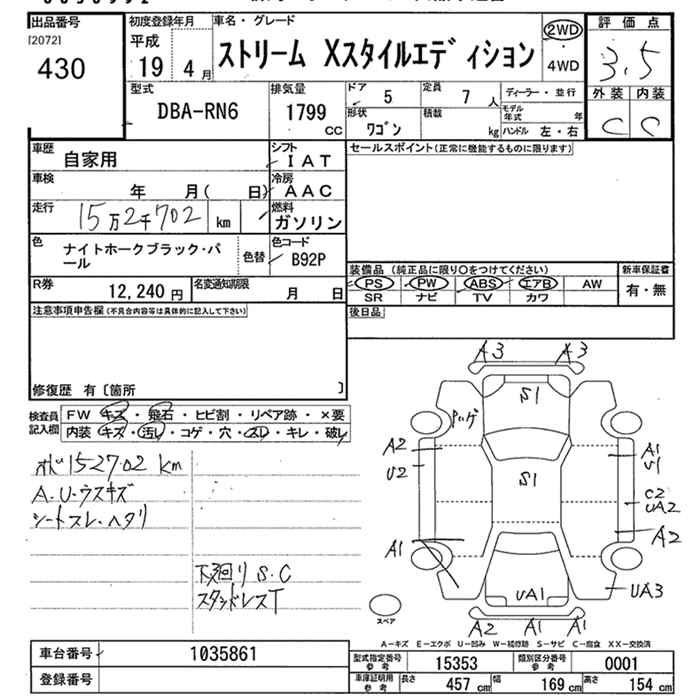 出品番号
[2072]
430
初度登録年月
平成
19 4月
車名・グレード
ストリーム Xスタイルエディション
2WD
・
4WD
評価点
3.5
外装 内装
C C
型式
DBA-RN6
排気量
1799
CC
ドア 5
定員 7 人
形状 ワゴン
積載 kg
ディーラー・並行
モデル年式 年
ハンドル 左・右
車歴 自家用
シフト IAT
車検 年 月( 日)
冷房 AAC
走行 15万2千702 km
燃料 ガソリン
色 ナイトホークブラック・パール
色替
色コード B92P
R券 12,240 円
名変通知期限 月 日
セールスポイント(正常に機能するものに限ります)
装備品 (純正品に限り○をつけてください)
PS PW ABS エアB AW
SR ナビ TV カワ
新車保証書
有・無
後日品
注意事項申告欄(不具合内容等は具体的に記入して下さい)
修復歴 有〔箇所 〕
検査員記入欄
FW キズ・飛石・ヒビ割・リペア跡・×要
内装 キズ・汚し・コゲ・穴・スレ・キレ・破し
オド152702km
A.U・ウスキズ
シートスレ・ヘタリ
下廻りS.C
スタッドレスT
A3 A3
S1
ハゲ
A2
U2
A1
U1
S1
C2
UA2
A2
A1
UA1
UA3
A2 A1 A1
スペア
A-キズ E-エクボ U-凹み W-補修跡 S-サビ C-腐食 XX-交換済
車台番号 1035861
登録番号
型式指定番号参考 15353
類別区分番号参考 0001
車庫証明用参考
長さ 457 cm
幅 169 cm
高さ 154 cm